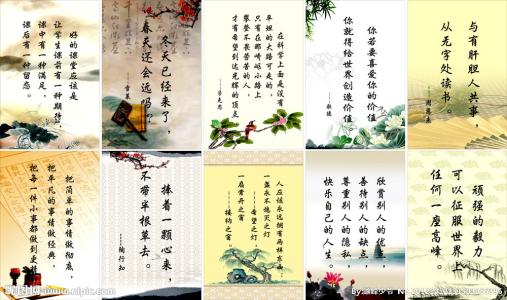 好的课堂应该是
让学生课前有一种期待，
课中有一种满足，
课后有一种留恋。
冬天已经来了，
春天还会远吗？
----雪莱
在科学上面是没有
平坦的大路可走的，
只有在那崎岖小路上
攀登不畏劳苦的人，
才有希望到达光辉的顶点
----马克思
你若要喜爱你的价值，
你就得给世界创造价值
----歌德
与有肝胆人共事，
从无字处读书。
----周恩来
把简单的事情做彻底，
把平凡的事情做经典，
把每一件小事都做到更
捧着一颗心来，
不带半根草去。
----陶行知
人应该永远拥有两样东西：
一盏永不熄灭之灯
----希望之灯
一扇常开之窗
----接纳之窗。
欣赏别人的优点，
善待别人的缺点，
尊重别人的隐私，
快乐自己的人生。
顽强的毅力
可以征服世界上
任何一座高峰。
www.nipic.com